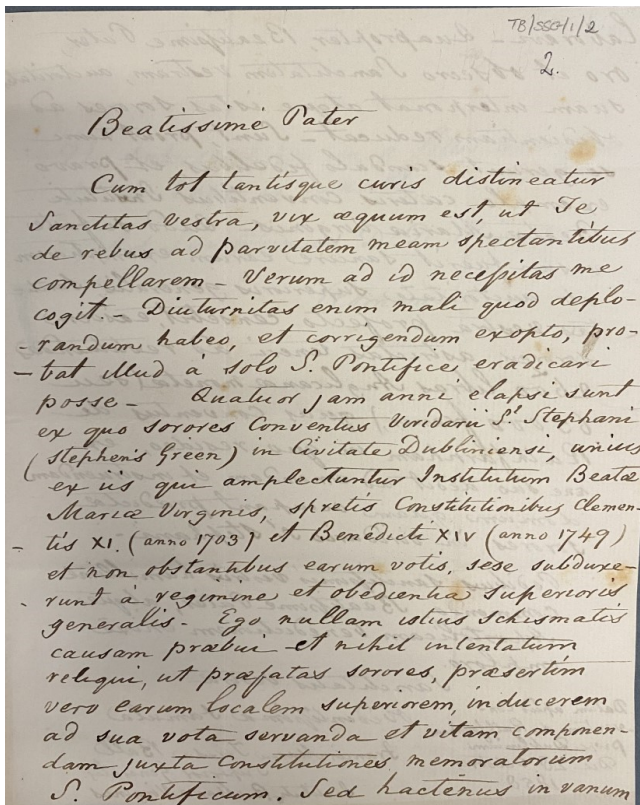 TB/SSG/1/2
2.
Beatissime Pater
Cum tot tantisque curis distineatur
Sanctitas vestra, vix æquum est, ut Te
de rebus ad parvitatem meam spectantibus
compellarem - Verum ad id necessitas me
cogit. - Diuturnitas enim mali quod deplo-
-randum habeo, et corrigendum exopto, pro-
-bat illud à solo S. Pontifice eradicari
posse - Quatuor jam anni elapsi sunt
ex quo sorores Conventus Viridarii Sti Stephani
(Stephen's Green) in Civitate Dubliniensi, unius
ex iis qui amplectuntur Institutum Beatæ
Mariæ Virginis, spretis Constitutionibus Clemen-
-tis XI. (anno 1703) et Benedicti XIV (anno 1749)
et non obstantibus earum votis, sese subduxe-
-runt à regimine et obedientia superioris
generalis - Ego nullam istius schismatis
causam præbui - et nihil intentatum
reliqui, ut præfatas sorores, præsertim
vero earum localem superiorem, inducerem
ad sua vota servanda et vitam componen-
dam juxta Constitutiones memoratorum
S. Pontificum. Sed hactenus in vanum